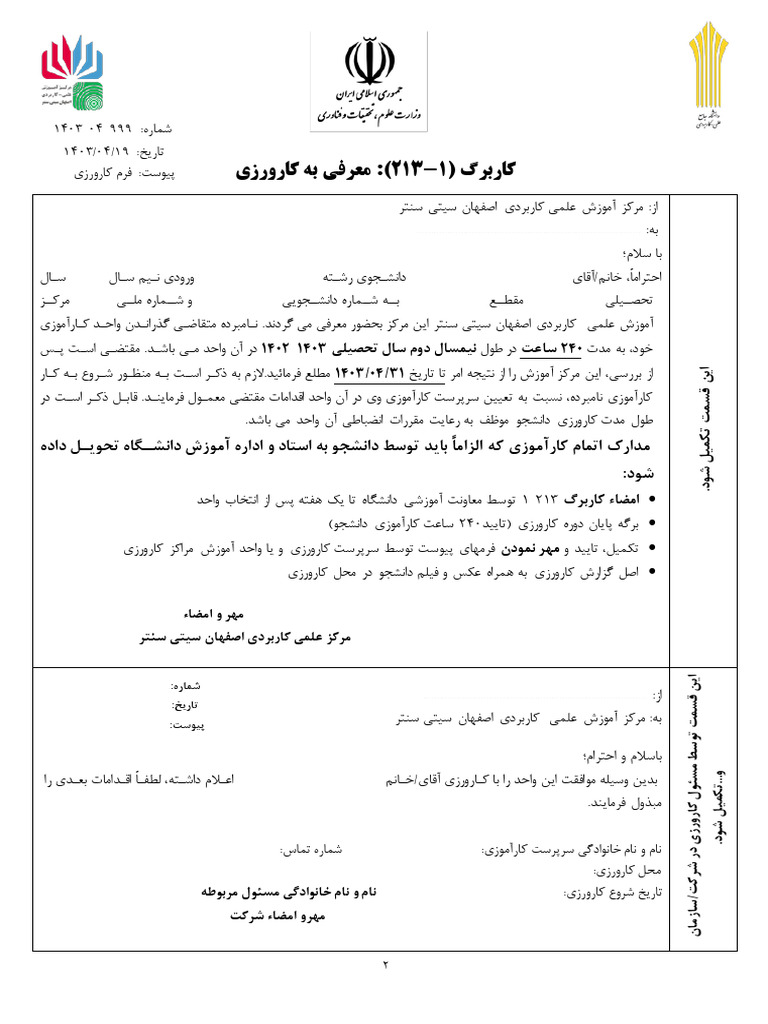 مرکز آموزش
علمی - کاربردی
اصفهان سیتی سنتر
جمهوری اسلامی ایران
وزارت علوم، تحقیقات و فناوری
دانشگاه جامع
علمی کاربردی
شماره: ۹۹۹ ۰۴ ۱۴۰۳
تاریخ: ۱۴۰۳/۰۴/۱۹
پیوست: فرم کارورزی
کاربرگ (۱-۲۱۳): معرفی به کارورزی
این قسمت تکمیل شود.
از: مرکز آموزش علمی کاربردی اصفهان سیتی سنتر
به:
با سلام؛
احتراماً، خانم/آقای دانشجوی رشته ورودی نیم سال سال
تحصیلی مقطع به شماره دانشجویی و شماره ملی مرکز
آموزش علمی کاربردی اصفهان سیتی سنتر این مرکز بحضور معرفی می گردند. نامبرده متقاضی گذراندن واحد کارآموزی
خود، به مدت ۲۴۰ ساعت در طول نیمسال دوم سال تحصیلی ۱۴۰۳ ۱۴۰۲ در آن واحد می باشد. مقتضی است پس
از بررسی، این مرکز آموزش را از نتیجه امر تا تاریخ ۱۴۰۳/۰۴/۳۱ مطلع فرمائید.لازم به ذکر است به منظور شروع به کار
کارآموزی نامبرده، نسبت به تعیین سرپرست کارآموزی وی در آن واحد اقدامات مقتضی معمول فرمایند. قابل ذکر است در
طول مدت کارورزی دانشجو موظف به رعایت مقررات انضباطی آن واحد می باشد.
مدارک اتمام کارآموزی که الزاماً باید توسط دانشجو به استاد و اداره آموزش دانشگاه تحویل داده
شود:
• امضاء کاربرگ ۲۱۳ ۱ توسط معاونت آموزشی دانشگاه تا یک هفته پس از انتخاب واحد
• برگه پایان دوره کارورزی (تایید۲۴۰ ساعت کارآموزی دانشجو)
• تکمیل، تایید و مهر نمودن فرمهای پیوست توسط سرپرست کارورزی و یا واحد آموزش مراکز کارورزی
• اصل گزارش کارورزی به همراه عکس و فیلم دانشجو در محل کارورزی
مهر و امضاء
مرکز علمی کاربردی اصفهان سیتی سنتر
این قسمت توسط مسئول کارورزی در شرکت/سازمان
و...تکمیل شود.
شماره:
تاریخ:
پیوست:
از:
به: مرکز آموزش علمی کاربردی اصفهان سیتی سنتر
باسلام و احترام؛
بدین وسیله موافقت این واحد را با کارورزی آقای/خانم اعلام داشته، لطفاً اقدامات بعدی را
مبذول فرمایند.
نام و نام خانوادگی سرپرست کارآموزی: شماره تماس:
محل کارورزی:
تاریخ شروع کارورزی: نام و نام خانوادگی مسئول مربوطه
مهرو امضاء شرکت
۲